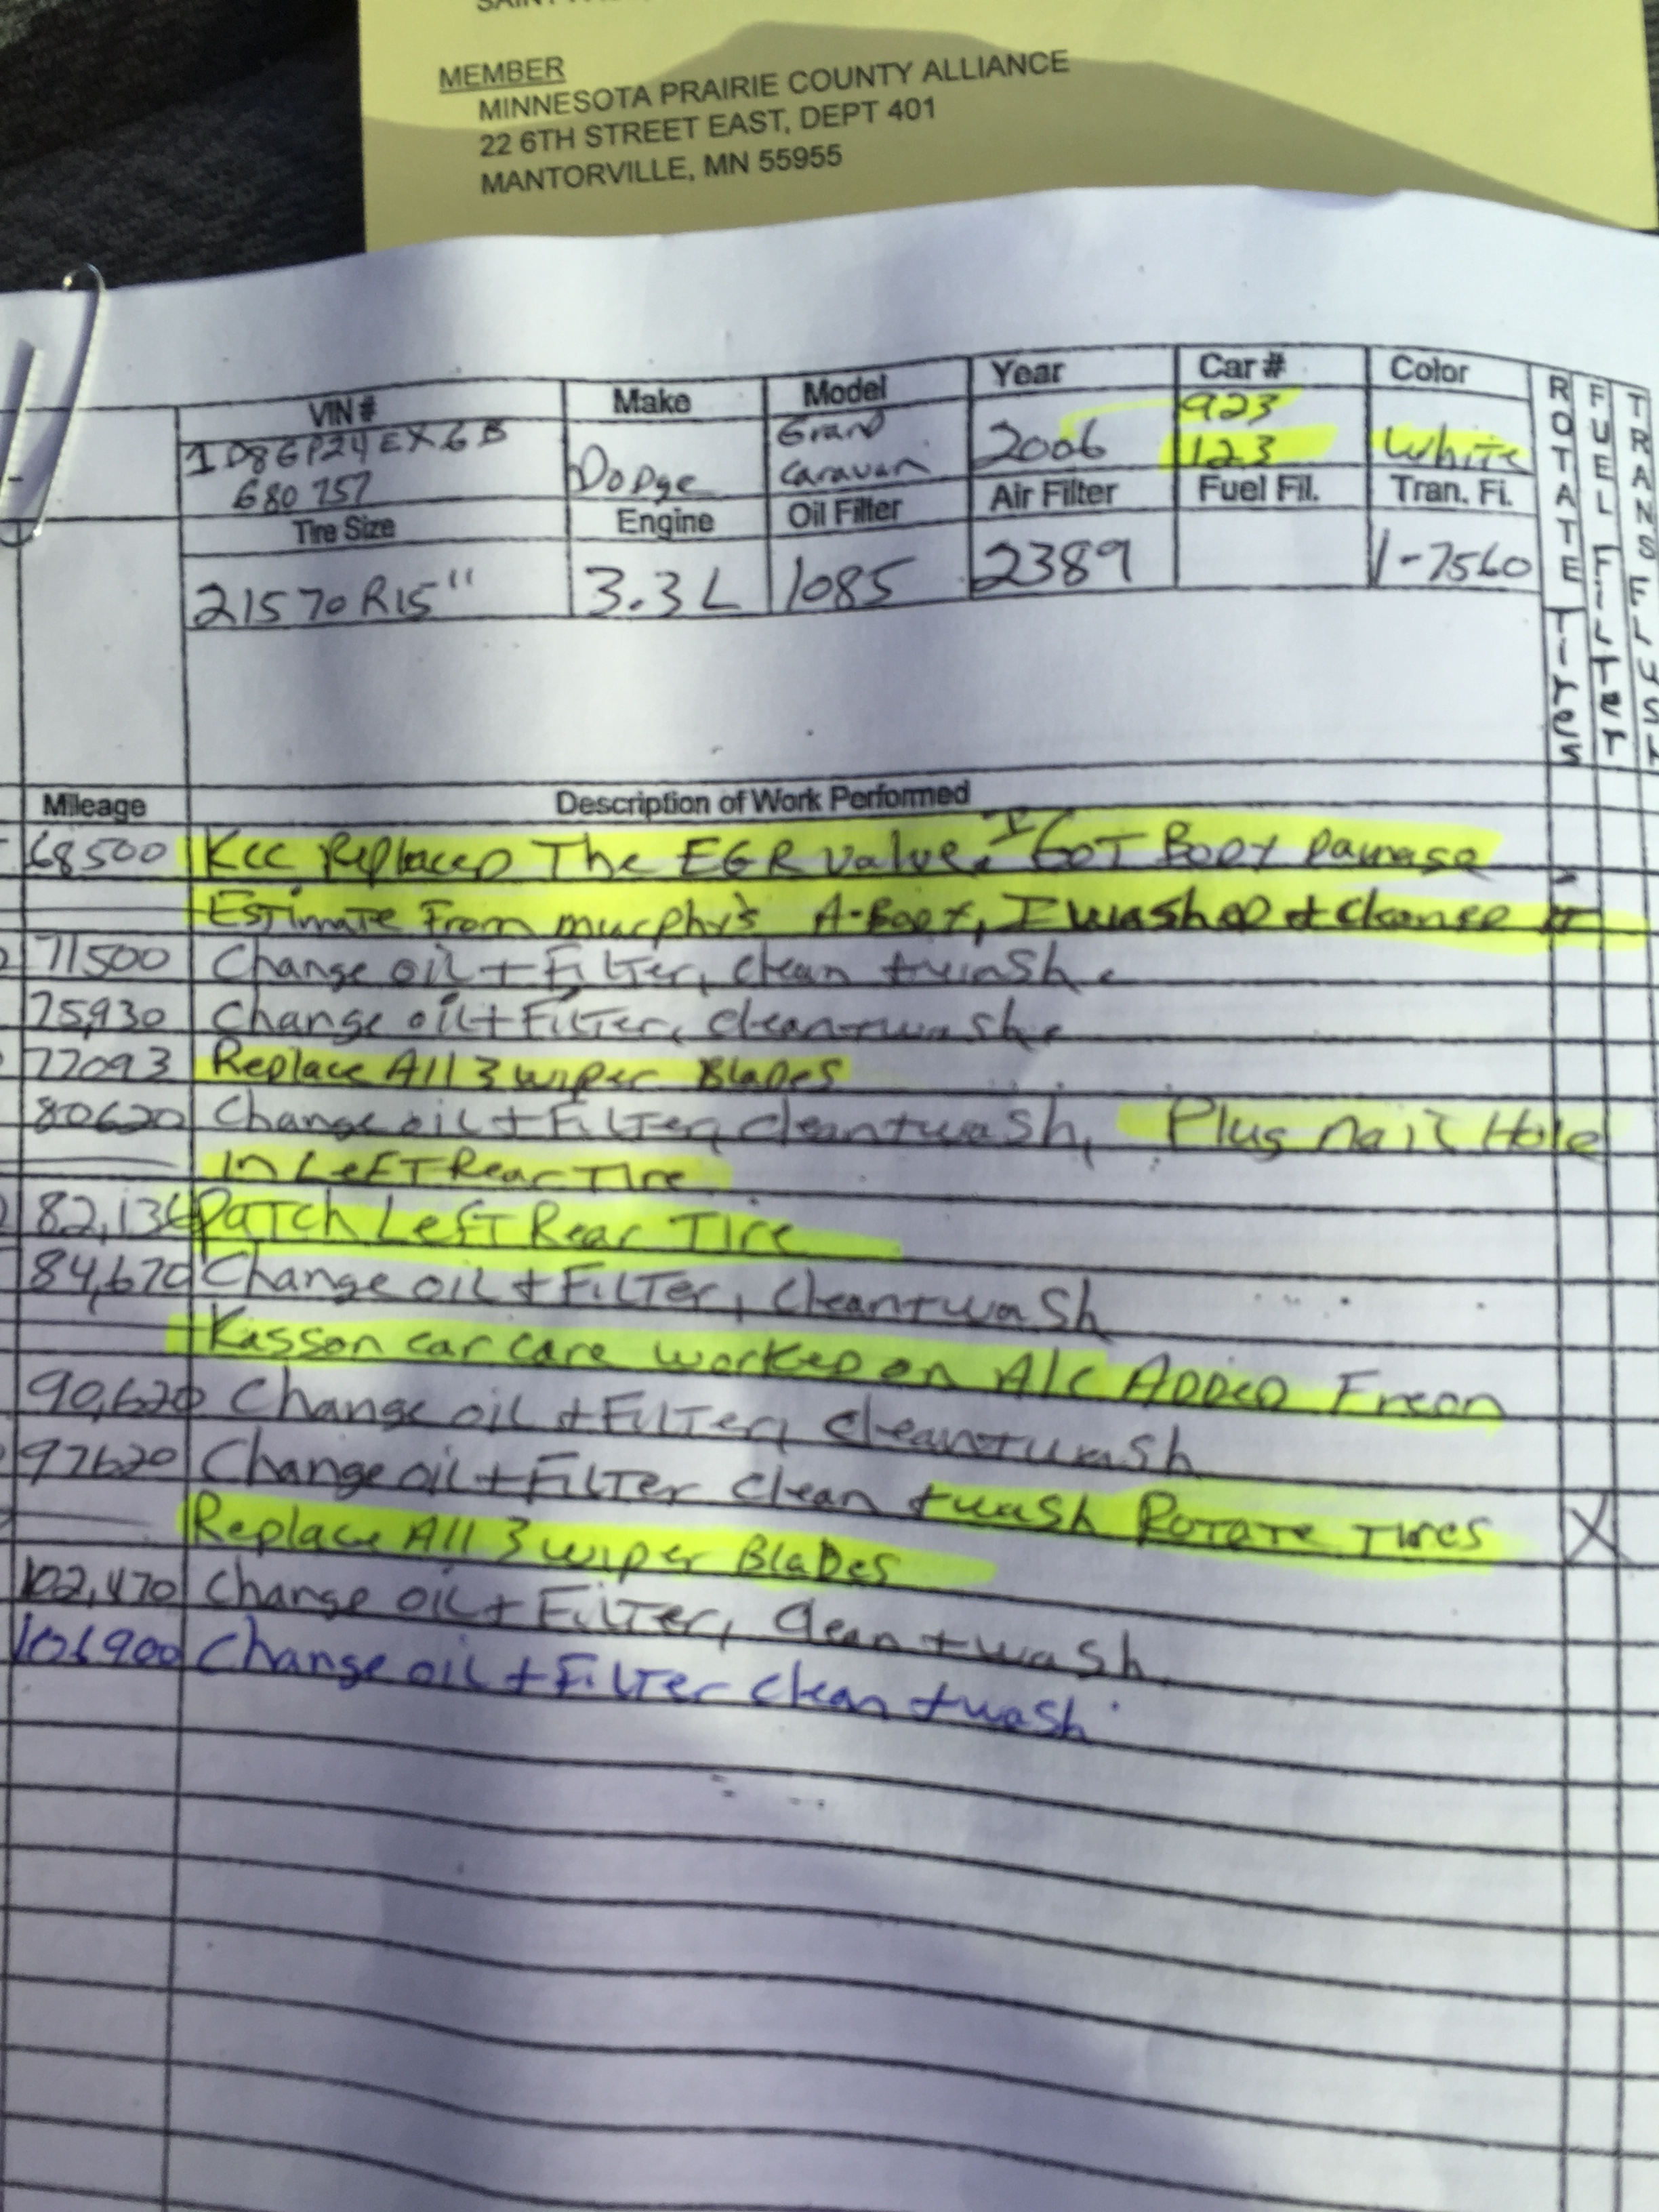 MEMBER
MINNESOTA PRAIRIE COUNTY ALLIANCE
22 6TH STREET EAST, DEPT 401
MANTORVILLE, MN 55955
VIN # Make Model Year Car # Color
1D8GP24EX6B
680757
Dodge
Grand
Caravan
2006
923
123
White
Tire Size Engine Oil Filter Air Filter Fuel Fil. Tran. Fi.
21570R15" 3.3L 1085 2389 1-7560
ROTATE Tires
FUEL FiLTer
TRANS FLUSH
Mileage Description of Work Performed
68500 KCC Replaced The EGR Valve. I GOT Body Damage
Estimate From Murphy's A-Body, I washed + cleaned it
71500 Change oil + Filter, clean + wash.
75,930 Change oil + Filter, clean + wash.
77093 Replace All 3 wiper Blades
80620 Change oil + Filter, clean + wash, Plug nail Hole
in Left Rear Tire
82,136 Patch Left Rear Tire
84,670 Change oil + Filter, clean + wash
Kasson car care worked on A/C Added Freon
90,620 Change oil + Filter, clean + wash
97620 Change oil + Filter clean + wash Rotate Tires X
Replace All 3 wiper Blades
102,470 Change oil + Filter, Clean + wash
106900 Change oil + Filter clean + wash